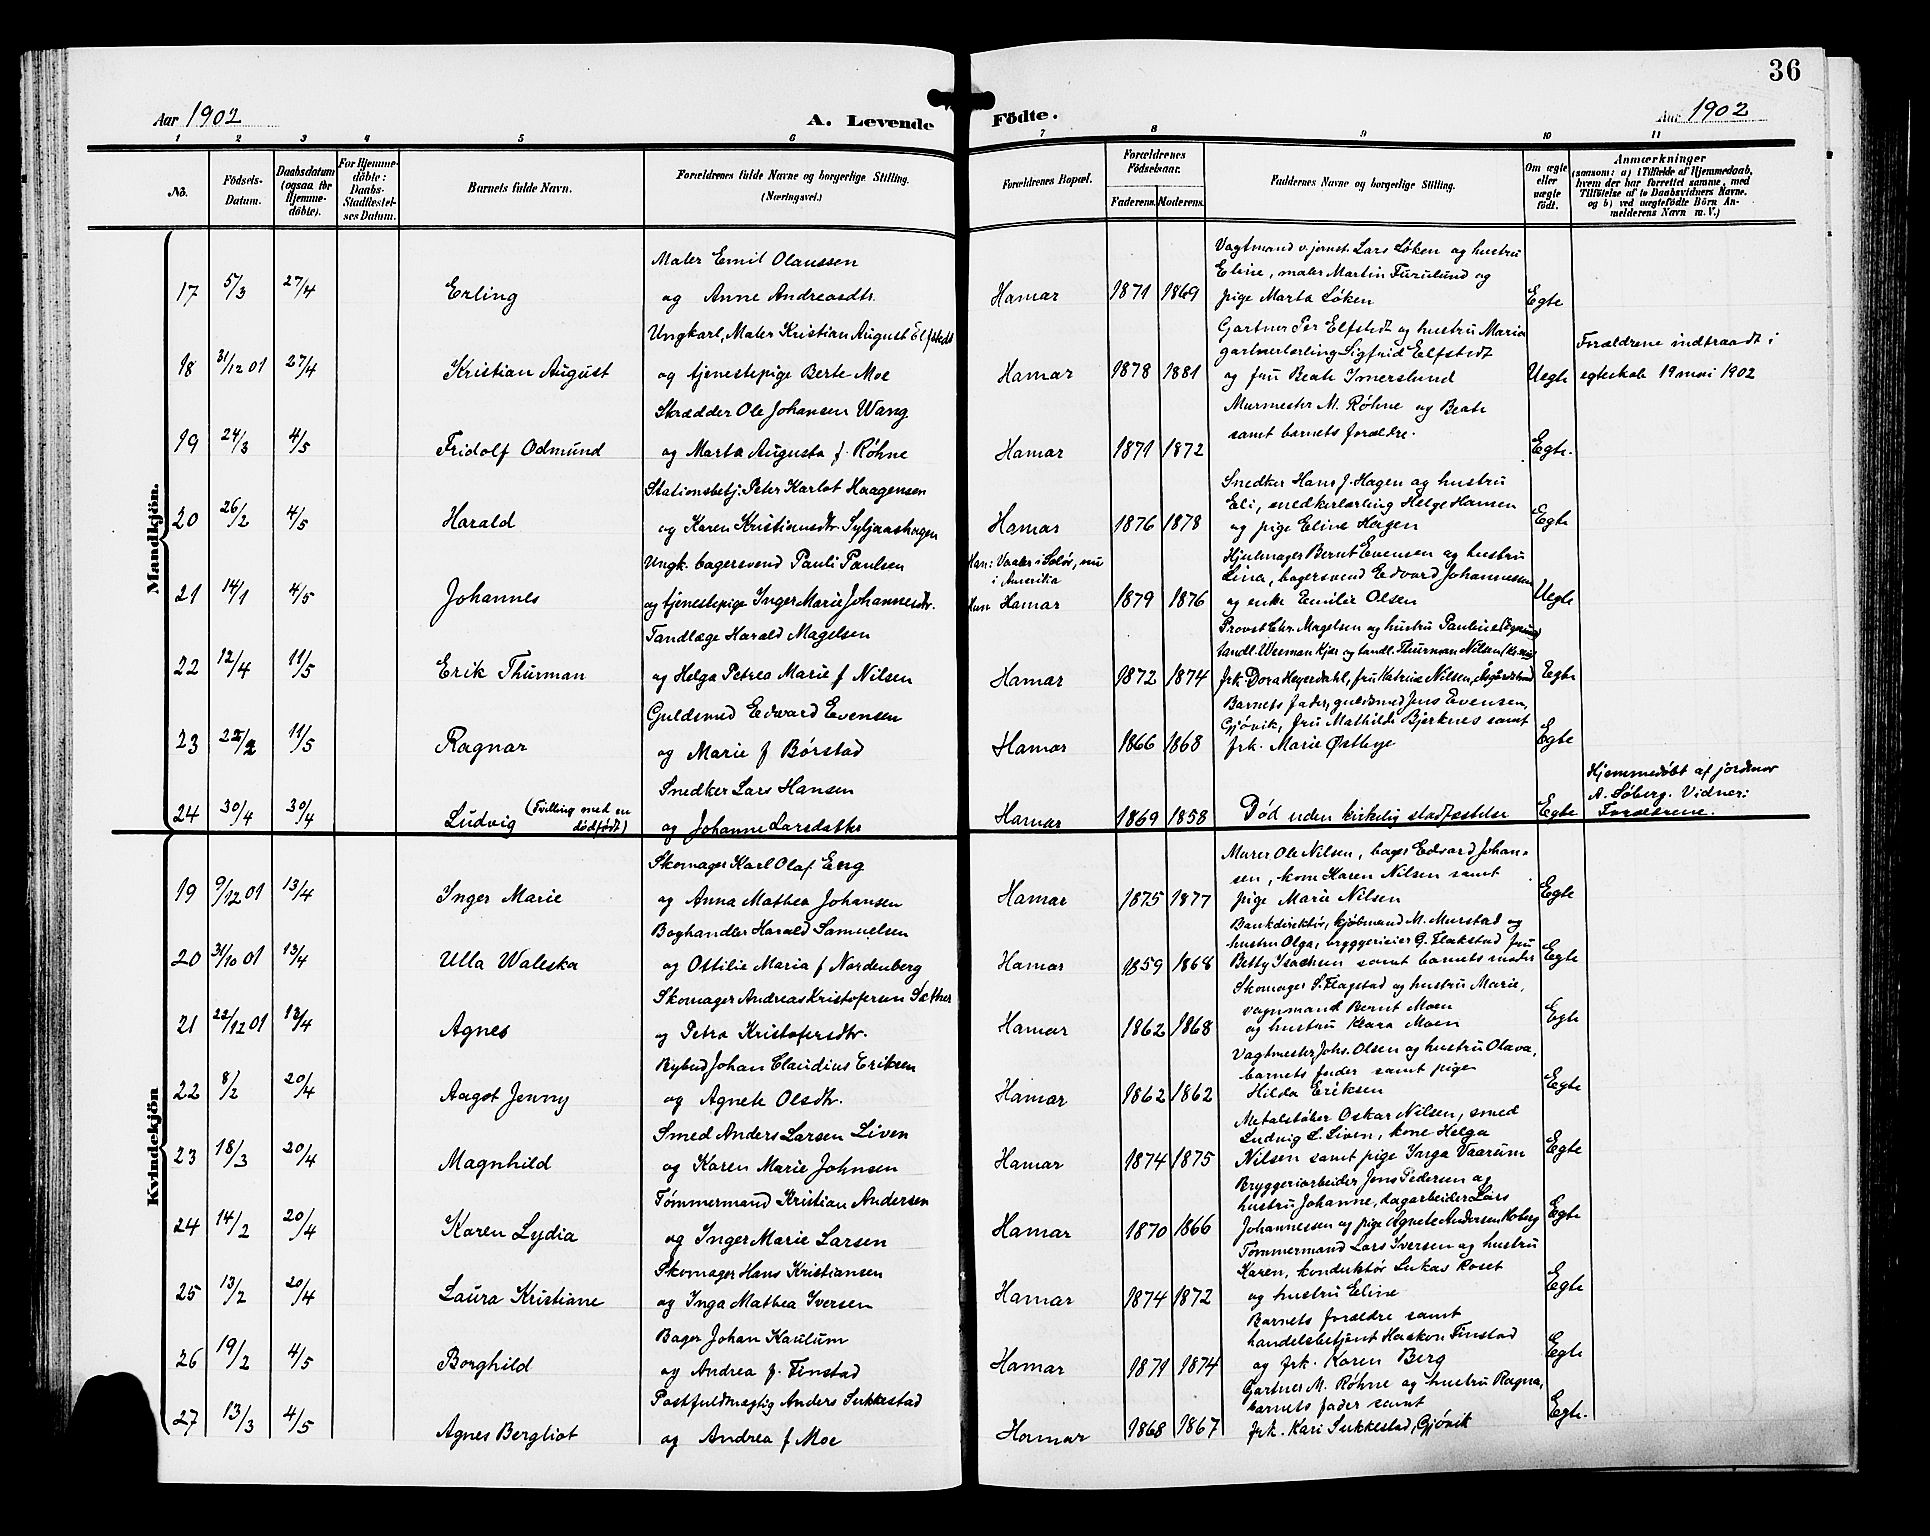 36
Aar 1902
A. Levende Födte.
Aar 1902
1 2 3 4 5 6 7 8 9 10 11
No.
Födsels-
Datum.
Daabsdatum
(ogsaa for
Hjemme-
döbte).
For Hjemme-
döbte:
Daabs-
Stadfæstel-
ses Datum.
Barnets fulde Navn.
Forældrenes fulde Navne og borgerlige Stilling.
(Næringsvei.)
Forældrenes Bopæl.
Forældrenes
Födselsaar.
Faderens. Moderens.
Faddernes Navne og borgerlige Stilling.
Om ægte
eller
uægte
født.
Anmærkninger
(saasom: a) i Tilfælde af Hjemmedaab,
hvem der har forrettet samme, med
Tilföielse af to Daabsvidners Navne.
og b) ved uægtefödte Börn An-
melderens Navn m. V.)
Mandkjön.
Maler Emil Olaussen
17 5/3 27/4 Erling og Anne Andreasdtr. Hamar 1871 1869
Vagtmand v. jernst. Lars Løken og hustru
Eline, maler Martin Furulund og
pige Marta Løken Egte
Ungkarl, Maler Kristian August Elfstedt
18 31/12 01 27/4 Kristian August og tjenestepige Berte Moe Hamar 1878 1881
Gartner Per Elfstedt og hustru Maria
gartnerlærling Sigfrid Elfstedt
og fru Beate Imerslund Uegte
Forældrene indtraadt i
egteskab 19 mai 1902
Skrædder Ole Johansen Wang
19 24/3 4/5 Fridolf Odmund og Marta Augusta f. Røhne Hamar 1871 1872
Murmester M. Røhne og Beate
samt barnets forældre. Egte.
Stationsbetj. Peter Karlot Haagensen
20 26/2 4/5 Harald og Karen Kristiansdtr. Syljuashagen Hamar 1876 1878
Snedker Hans J. Hagen og hustru
Eli, snedkerlærling Helge Hansen
og pige Eline Hagen Egte
Ungk. bagersvend Pauli Paulsen
21 14/1 4/5 Johannes og tjenestepige Inger Marie Johannesdtr.
Han: Vaaler i Solør, nu
i Amerika
Hun Hamar 1879 1876
Hjulmager Bernt Evensen og hustru
Lina, bagersvend Edvard Johannessen
og enke Emilie Olsen Uegte
Tandlæge Harald Magelsen
22 12/4 11/5 Erik Thurman og Helga Petrea Marie f Nilsen Hamar 1872 1874
Provst Chr. Magelsen og hustru Pauline
tandl. Werman Kjær og tandl. Thurman Nilsen
frk. Dora Heyerdahl, fru Katrine Nilsen, Åsgårdstrand Egte
Guldsmed Edvard Evensen
23 22/2 11/5 Ragnar og Marie f Børstad Hamar 1866 1868
Barnets fader, guldsmed Jens Evensen,
Gjøvik, fru Mathilde Bjerknes samt
frk. Marie Østbye Egte
Snedker Lars Hansen
24 30/4 30/4 Ludvig (Tvilling med en
dødfødt) og Johanne Larsdatter Hamar 1869 1858 Død uden kirkelig stadfæstelse Egte
Hjemmedøbt af jordmor
A. Søberg. Vidner:
Forældrene.
Kvindekjön
Skomager Karl Olaf Eng
19 9/12 01 13/4 Inger Marie og Anna Mathea Johansen Hamar 1875 1877
Murer Ole Nilsen, bager Edvard Johan-
sen, kone Karen Nilsen samt
pige Marie Nilsen Egte
Boghandler Harald Samuelsen
20 31/10 01 13/4 Ulla Waleska og Ottilie Maria f Nordenberg Hamar 1859 1868
Bankdirektør, kjøbmand M. Murstad og
hustru Olga, bryggerieier G. Flakstad fru
Betty Isachsen samt barnets moder Egte
Skomager Andreas Kristofersen Sæther
21 22/12 01 13/4 Agnes og Petra Kristofersdtr. Hamar 1862 1868
Skomager S. Flagstad og hustru Marie,
vognmand Bernt Moen
og hustru Klara Moen Egte
Bybud Johan Claudius Eriksen
22 8/2 20/4 Aagot Jenny og Agnete Olsdtr. Hamar 1862 1862
Vagtmester Johs. Olsen og hustru Olava,
barnets fader samt pige
Hilda Eriksen Egte
Smed Anders Larsen Liven
23 18/3 20/4 Magnhild og Karen Marie Johnsen Hamar 1874 1875
Metalstøber Oskar Nilsen, smed
Ludvig L. Liven, kone Helga
Nilsen samt pige Inga Vaarum Egte
Tømmermand Kristian Andersen
24 14/2 20/4 Karen Lydia og Inger Marie Larsen Hamar 1870 1866
Bryggeriarbeider Jens Pedersen og
hustru Johanne, dagarbeider Lars
Johannessen og pige Agnete Andersen Moberg Egte
Skomager Hans Kristiansen
25 13/2 20/4 Laura Kristiane og Inga Mathea Iversen Hamar 1874 1872
Tømmermand Lars Iversen og hustru
Karen, konduktør Lukas Roset
og hustru Eline Egte
Bager Johan Kaulum
26 19/2 4/5 Borghild og Andrea f. Finstad Hamar 1871 1874
Barnets forældre samt
handelsbetjent Haakon Finstad
og frk. Karen Berg Egte
Postfuldmægtig Anders Sukkestad
27 13/3 4/5 Agnes Bergliot og Andrea f Moe Hamar 1868 1867
Gartner M. Røhne og hustru Ragna,
barnets fader samt
frk. Kari Sukkestad, Gjøvik Egte.